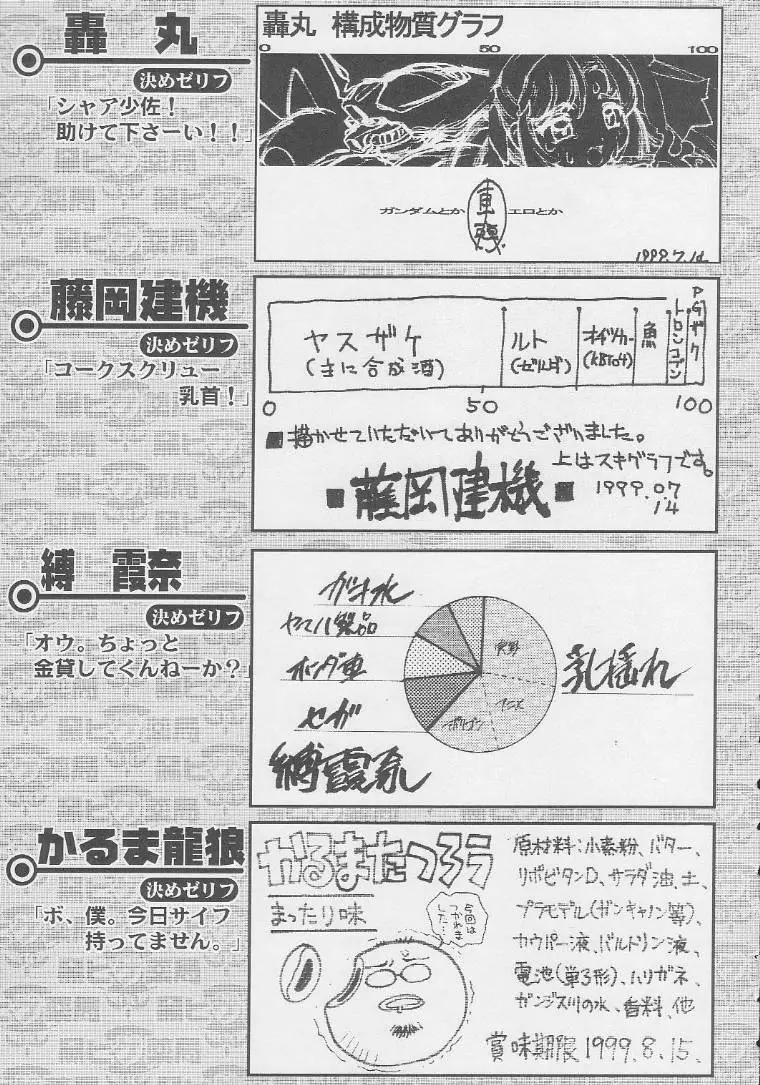 轟丸
決めゼリフ
「シャア少佐！
助けて下さーい！！」
轟丸 構成物質グラフ
0 50 100
ガンダムとか
エロとか
藤岡建機
決めゼリフ
「コークスクリュー
乳首！」
ヤスザケ
(主に合成酒)
ルト
魚
トロンコブン
PGザク
0 50 100
■描かせていただいてありがとうございました。
上はスキグラフです。
■藤岡建機■
1999.07
14
縛 霞奈
決めゼリフ
「オウ。ちょっと
金貸してくんねーか？」
ガオ水
ヤマハ製品
ホンダ車
セガ
実写
アニメ
ポリゴン
乳揺れ
縛霞奈
かるま龍狼
決めゼリフ
「ボ、僕。今日サイフ
持ってません。」
かるまたつろう
まったり味
今回は
つかれま
した…
原材料：小麦粉、バター、
リポビタンD、サラダ油、土、
プラモデル(ガンキャノン等)、
カウパー液、バルトリン液、
電池(単3形)、ハリガネ、
ガンジス川の水、香料、他
賞味期限 1999.8.15.